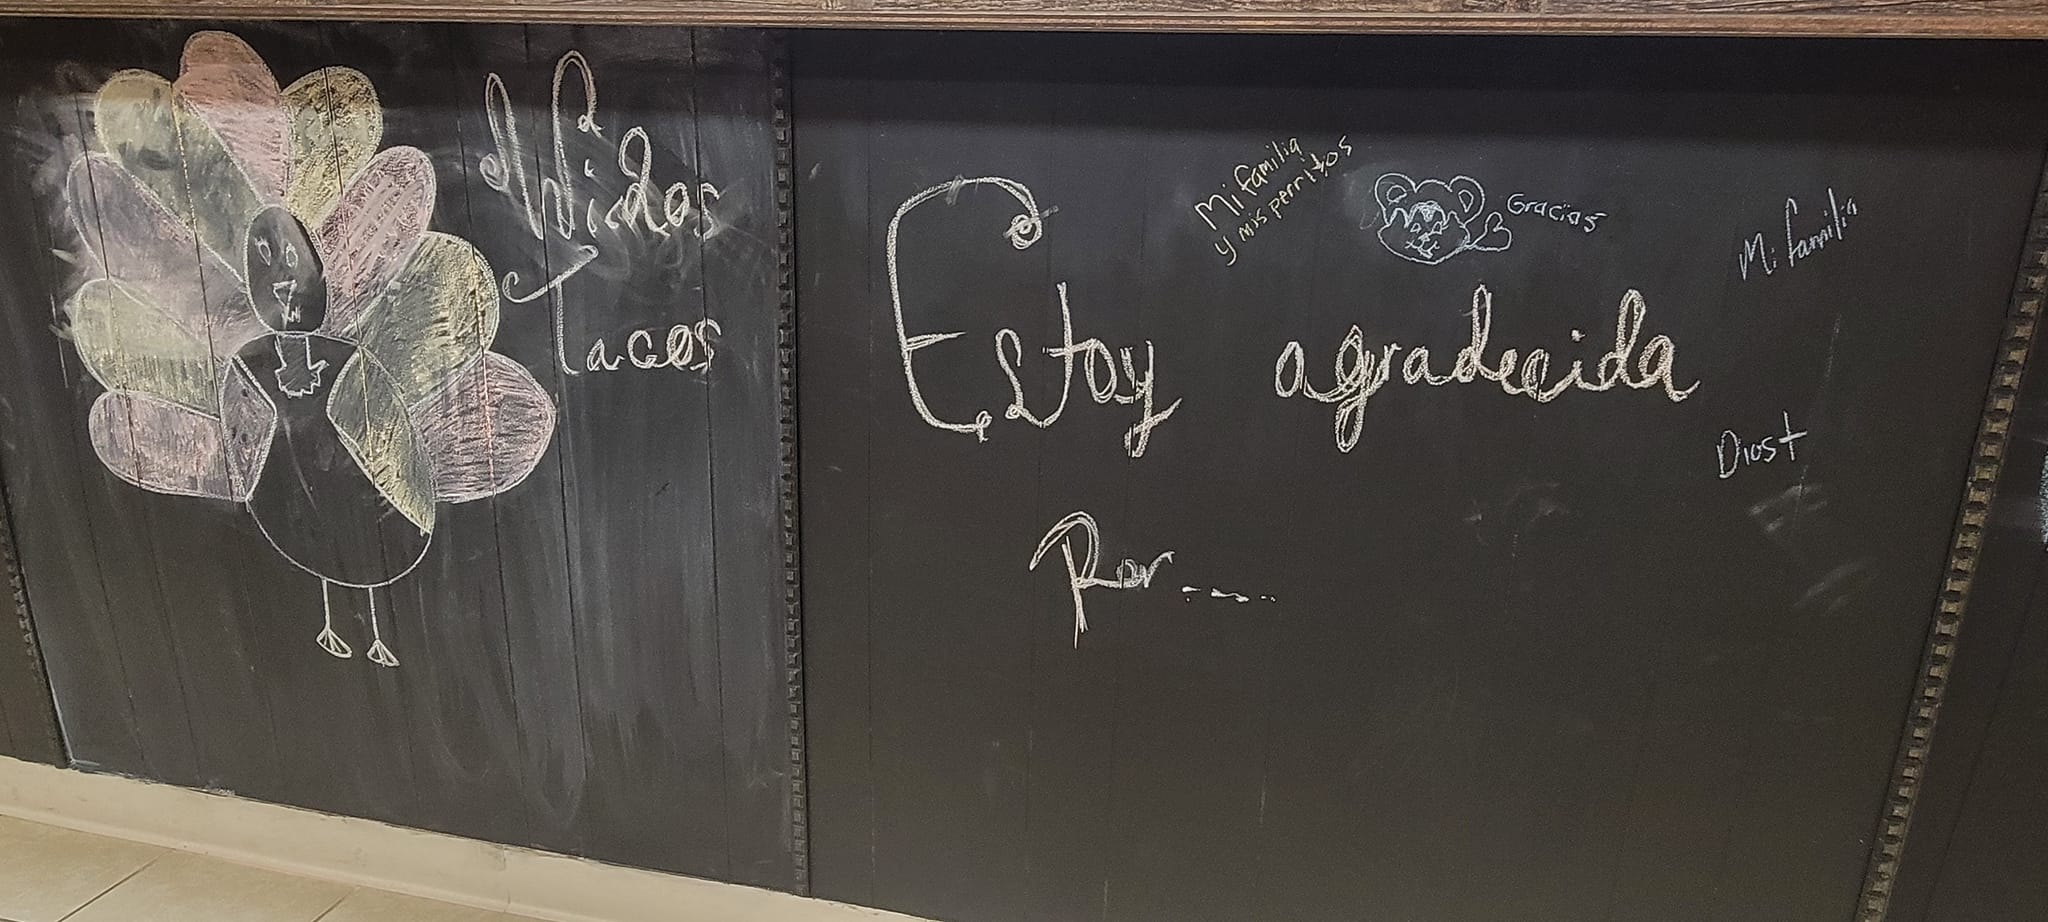 Wicho's
Tacos
Mi familia
y mis perritos
Gracias
Mi familia
Estoy agradecida
Dios
Por.....